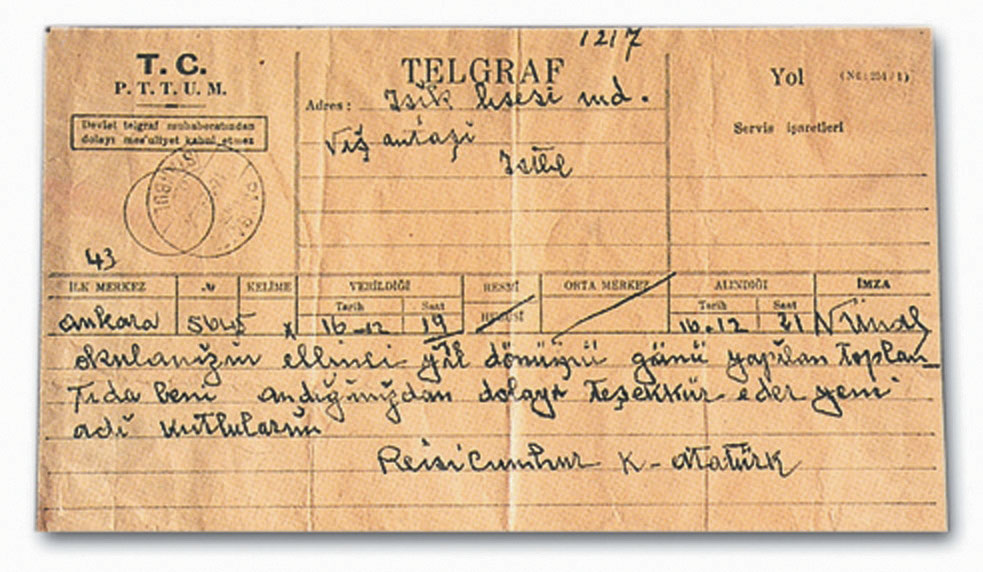 1217
T. C.
P. T. T. U. M.
Devlet telgraf muhaberatından
dolayı mes'uliyet kabul etmez
TELGRAF
Adres : Işık lisesi md.
Nişantaşi
İstbl
Yol (No: 251/1)
Servis işaretleri
İSTANBUL
43
İLK MERKEZ № KELİME VERİLDİĞİ RESMİ ORTA MERKEZ ALINDIĞI İMZA
Tarih Saat HUSUSİ Tarih Saat
ankara 5645 x 16-12 19 16-12 21 N Ünal
okulanızın ellinci yıl dönümü günü yapılan toplan_
tıda beni andığınızdan dolayı teşekkür eder yeni
adı kutlularım
Reisicumhur K-Atatürk